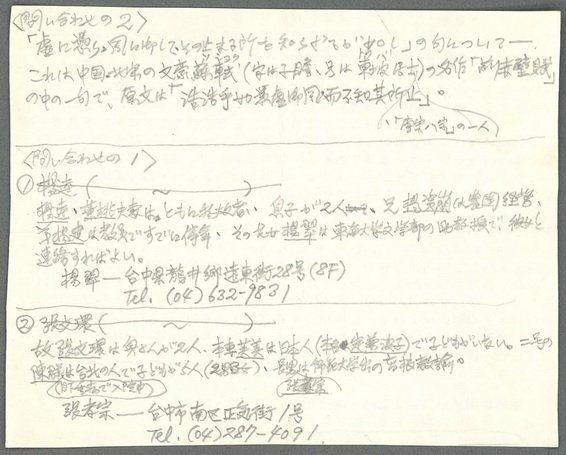 〈問い合わせの2〉
「虚に憑り風に御してその止まる所を知らざるが如し」の句について—
これは中国、北宋の文豪蘇軾(字は子瞻、号は東坡居士)の名作「前赤壁賦」
の中の一句で、原文は「浩浩乎如憑虚御風而不知其所止」。
「唐宋八家」の一人
〈問い合わせの1〉
① 楊逵(〜)
楊逵、葉陶夫妻は、ともに死亡、息子が2人、兄楊資崩は農園経営、
弟楊建は教員ですでに停年、その女楊翠は東海大学文学部の助教授で、彼女と
連絡すればよい。
楊翠—台中県龍井郷遠東街28号(8F)
Tel. (04) 632-9831
② 張文環(〜)
故張文環は奥さんが2人、本妻芙美は日本人(定兼波子)で子どもがいない。二号の
陳群は台北の人で子どもが5人、長男は師範大学出の高校教諭。
張孝宗
張孝宗—台中市南区正気街1号
Tel. (04) 287-4091